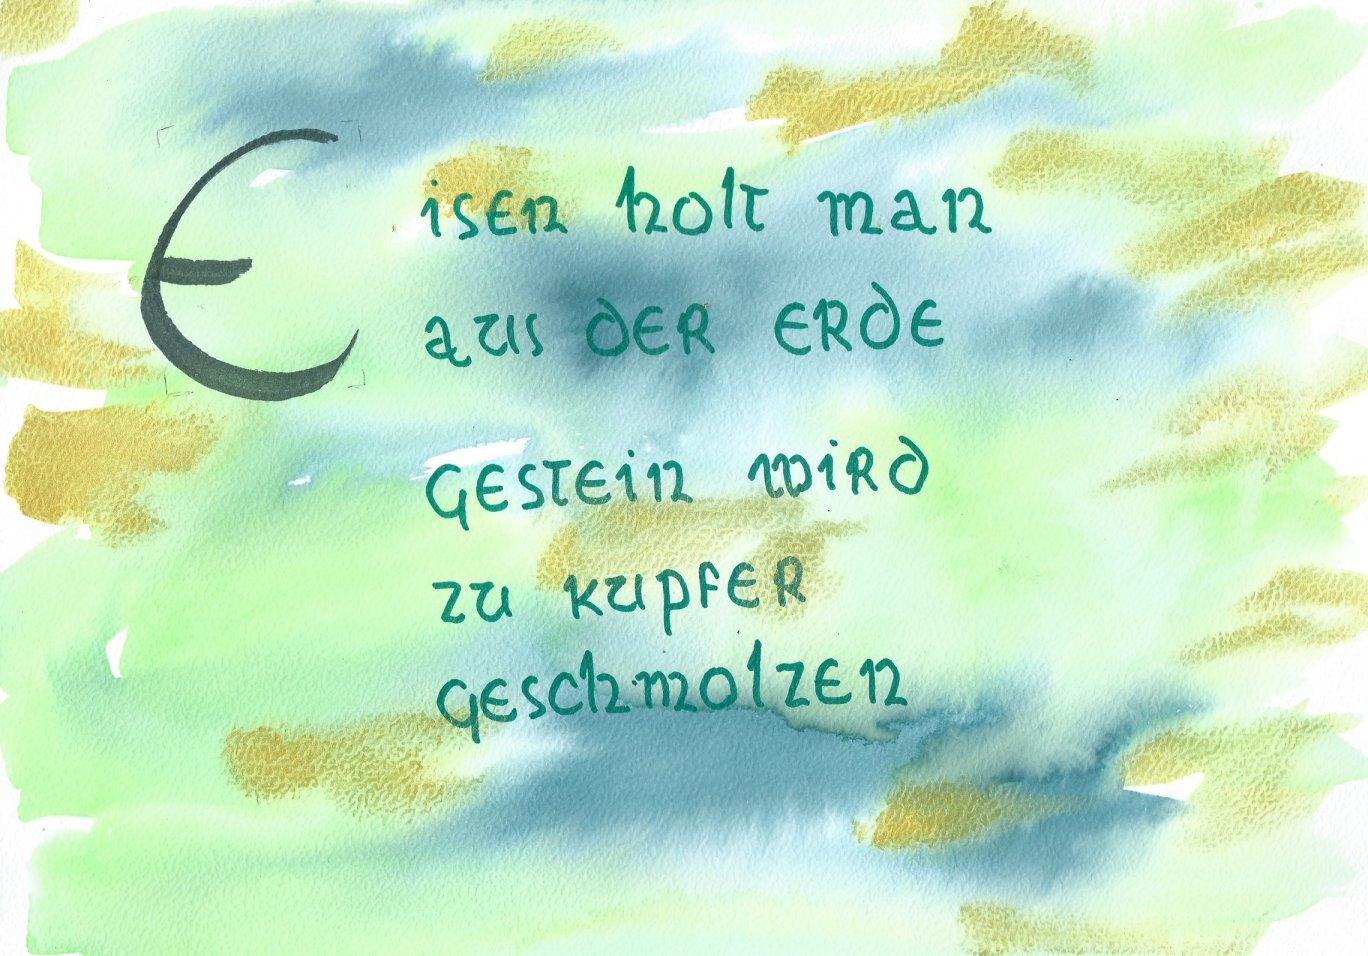 Eisen holt man
aus der Erde
Gestein wird
zu Kupfer
geschmolzen